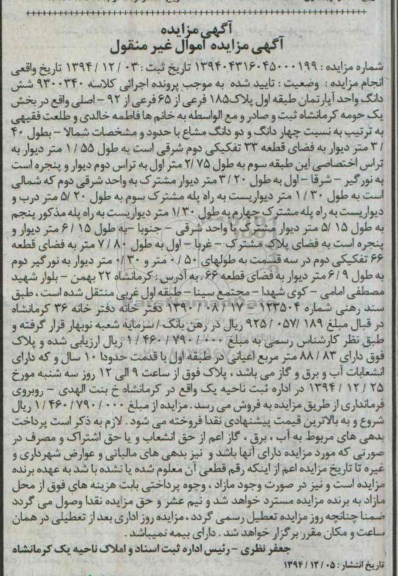 آگهی مزایده
آگهی مزایده اموال غیر منقول
شماره مزایده : ۱۳۹۴۰۴۳۱۶۰۴۵۰۰۰۱۹۹ تاریخ ثبت : ۰۳ / ۱۲ / ۱۳۹۴ تاریخ واقعی
انجام مزایده : وضعیت : تایید شده به موجب پرونده اجرائی کلاسه ۹۳۰۰۳۴۰ شش
دانگ واحد آپارتمان طبقه اول پلاک۱۸۵ فرعی از ۶۵ فرعی از ۹۲ – اصلی واقع در بخش
یک حومه کرمانشاه ثبت و صادر و مع الواسطه به خانم ها فاطمه خالدی و طلعت فقیهی
به ترتیب به نسبت چهار دانگ و دو دانگ مشاع با حدود و مشخصات شمالا – بطول ۴۰
/ ۳ متر دیوار به فضای قطعه ۳۳ تفکیکی دوم شرقی است به طول ۵۵ / ۱ متر دیوار به
تراس اختصاصی این طبقه سوم به طول ۷۵ / ۲ متر اول به تراس دوم دیوار و پنجره است
به نورگیر – شرقا – اول به طول ۲۰ / ۳ متر دیوار مشترک به واحد شرقی دوم که شمالی
است به طول ۳۰ / ۱ متر دیواریست به راه پله مشترک سوم به طول ۲۰ / ۵ متر درب و
دیواریست به راه پله مشترک چهارم به طول ۳۰ / ۱ متر دیواریست به راه پله مذکور پنجم
به طول ۱۵ / ۵ متر دیوار مشترک با واحد شرقی – جنوبا – به طول ۱۵ / ۶ متر دیوار و
پنجره است به فضای پلاک مشترک – غربا – اول به طول ۸۰ / ۷ متر به فضای قطعه
۶۶ تفکیکی دوم در سه قسمت به طولهای ۵۰ / ۰ متر و ۳۰ / ۰ متر دیوار به نورگیر دوم
به طول ۹ / ۶ متر دیوار به فضای قطعه ۶۶ ، به آدرس : کرمانشاه ۲۲ بهمن – بلوار شهید
مصطفی امامی – کوی شهدا – مجتمع سینا – طبقه اول غربی منتقل شده است ، طبق
سند رهنی شماره ۱۳۳۵۰۴ – ۱۷ / ۰۸ / ۱۳۹۰ دفتر خانه دفتر خانه ۳۶ کرمانشاه
در قبال مبلغ ۱۸۹ / ۰۵۷ / ۹۲۵ ریال در رهن بانک / سرمایه شعبه نوبهار قرار گرفته و
طبق نظر کارشناس رسمی به مبلغ ۰۰۰ / ۷۹۰ / ۴۶۰ / ۱ ریال ارزیابی شده و پلاک
فوق دارای ۸۳ / ۸۸ متر مربع اعیانی در طبقه اول با قدمت حدودا ۱۰ سال و که دارای
انشعابات آب و برق و گاز می باشد ، پلاک فوق از ساعت ۹ الی ۱۲ روز سه شنبه مورخ
۲۵ / ۱۲ / ۱۳۹۴ در اداره ثبت ناحیه یک واقع در کرمانشاه خ بنت الهدی – روبروی
فرمانداری از طریق مزایده به فروش می رسد . مزایده از مبلغ ۰۰۰ / ۷۹۰ / ۴۶۰ / ۱ ریال
شروع و به بالاترین قیمت پیشنهادی نقدا فروخته می شود . لازم به ذکر است پرداخت
بدهی های مربوط به آب ، برق ، گاز اعم از حق انشعاب و یا حق اشتراک و مصرف در
صورتی که مورد مزایده دارای آنها باشد و نیز بدهی های مالیاتی و عوارض شهرداری و
غیره تا تاریخ مزایده اعم از اینکه رقم قطعی آن معلوم شده یا نشده با شد به عهده برنده
مزایده است و نیز در صورت وجود مازاد ، وجوه پرداختی بابت هزینه های فوق از محل
مازاد به برنده مزایده مسترد خواهد شد و نیم عشر و حق مزایده نقدا وصول می گردد
ضمنا چنانچه روز مزایده تعطیل رسمی گردد ، مزایده روز اداری بعد از تعطیلی در همان
ساعت و مکان مقرر برگزار خواهد شد . دارای بیمه نمیباشد .
جعفر نظری – رئیس اداره ثبت اسناد و املاک ناحیه یک کرمانشاه
تاریخ انتشار : ۰۵ / ۱۲ / ۱۳۹۴